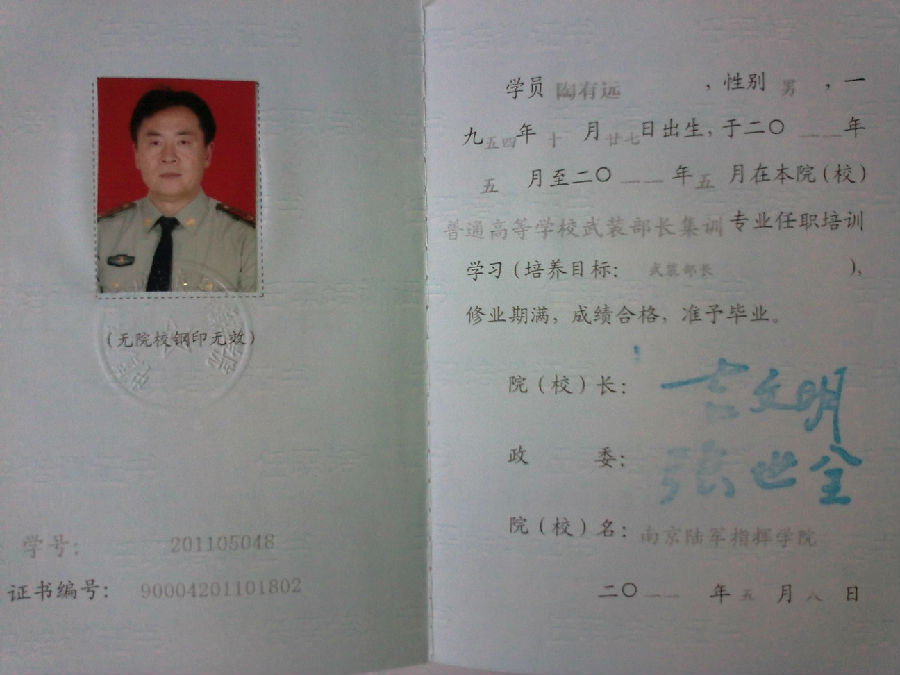 (无院校钢印无效)
学号: 201105048
证书编号: 90004201101802
学员 陶有远 ，性别 男 ，一
九五四年 十 月 廿七日出生，于二〇一一年
五 月至二〇一一年五 月在本院(校)
普通高等学校武装部长集训专业任职培训
学习(培养目标: 武装部长 )，
修业期满，成绩合格，准予毕业。
院(校)长: 吉文明
政 委: 张世全
院(校)名: 南京陆军指挥学院
二〇一一 年 五 月 八 日